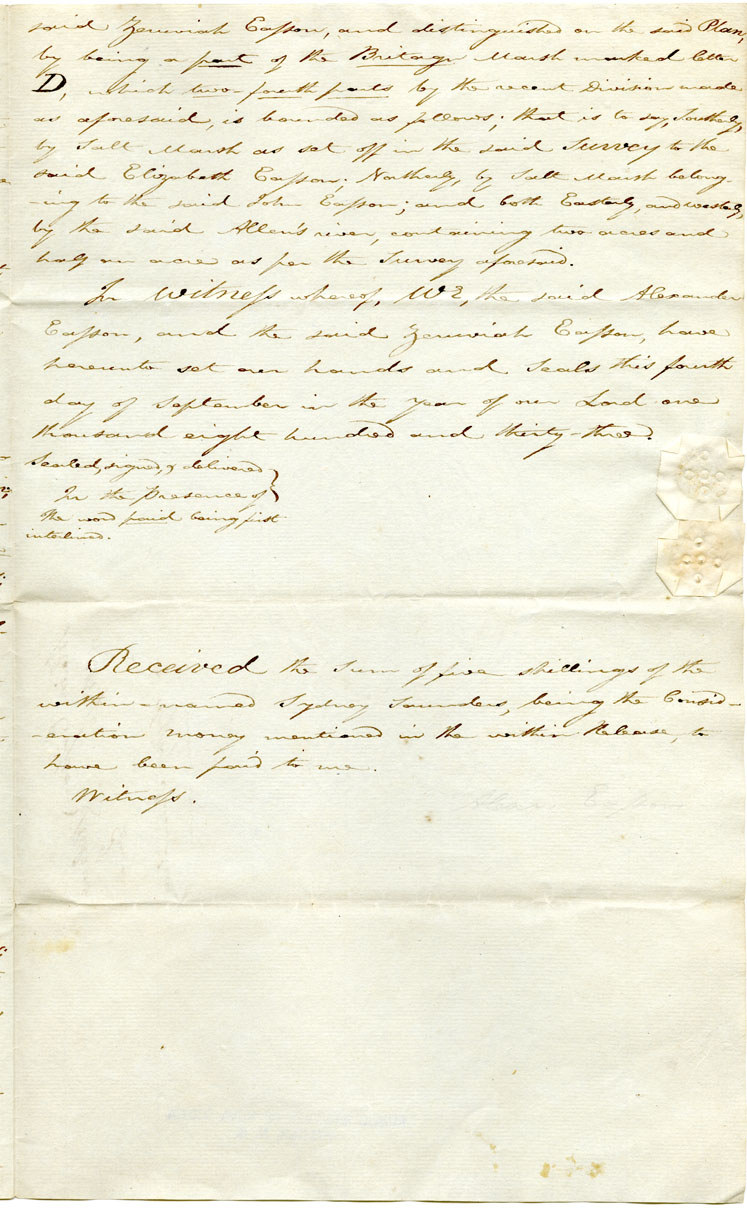 said Zeruviah Easson, and distinguished on the said Plan,
by being a part of the Britagn Marsh marked letter
D, which two fourth parts by the recent Division made
as aforesaid, is bounded as follows; that is to say, Southerly,
by Salt Marsh as set off in the said Survey to the
said Elizabeth Easson; Northerly, by Salt Marsh belong-
-ing to the said John Easson; and both Easterly, and westerly,
by the said Allen's river, containing two acres and
half an acre as per the Survey aforesaid.
In Witness whereof, WE, the said Alexander
Easson, and the said Zeruviah Easson, have
hereunto set our hands and Seals this fourth
day of September in the year of our Lord one
thousand eight hundred and thirty-three.
Sealed, signed, & delivered
In the Presence of
the word paid being first
interlined.
Received the Sum of five shillings of the
within-named Sydney Saunders, being the Consid-
-eration money mentioned in the within Release, to
have been paid to me.
Witness.
Easson